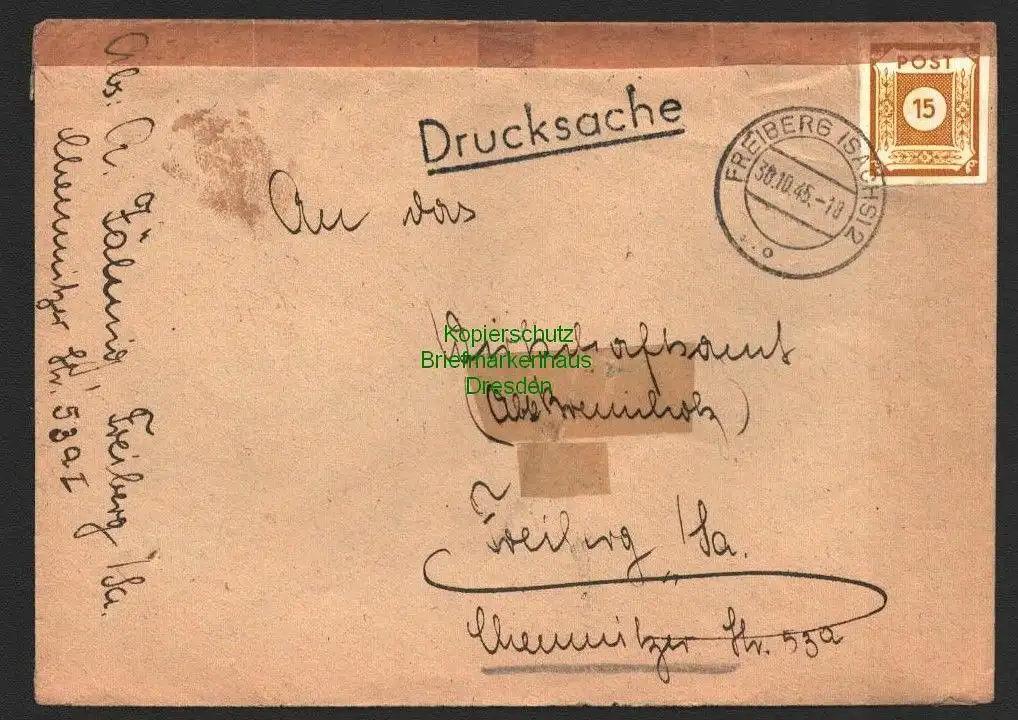 Drucksache
POST
15
FREIBERG (SACHS) 2
30.10.45.-18
An das
Wirtschaftsamt
Kopierschutz
Briefmarkenhaus
Dresden
(Abt. Brennholz)
Freiberg /Sa.
Chemnitzer Str. 53a
Abs: A.
Freiberg /Sa.
Chemnitzer Str. 53a I